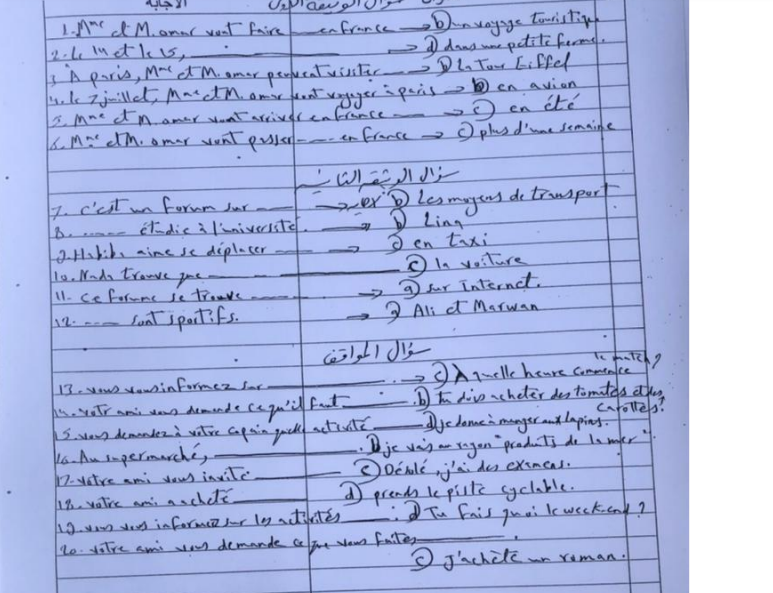 الاجابة
1. Mme et M. omar vont faire en france → b) un voyage touristique
2. Le 14 et le 15, → d) dans une petite ferme.
3. À paris, Mme et M. omar peuvent visiter → b) La Tour Eiffel
4. Le 7 juillet, Mme et M. omar vont voyager à paris → b) en avion
5. Mme et M. omar vont arriver en france → c) en été
6. Mme et M. omar vont passer en france → c) plus d'une semaine
سؤال الوثيقة الثانية
7. c'est un forum sur → b) Les moyens de transport
8. étudie à l'université. b) Lina
9. Habib aime se déplacer → c) en taxi
10. Nada trouve que c) la voiture
11. Ce forum se trouve → a) sur Internet.
12. sont sportifs. → a) Ali et Marwan
سؤال المواقف
le match?
13. vous vous informez sur → c) À quelle heure commence
14. votre ami vous demande ce qu'il faut b) tu dois acheter des tomates et des
carottes.
15. vous demandez à votre copain quelle activité d) je donne à manger aux lapins.
16. Au supermarché, . b) je vais au rayon "produits de la mer".
17. votre ami vous invite c) Désolé, j'ai des examens.
18. votre ami a acheté d) prends la piste cyclable.
19. vous vous informez sur les activités : d) Tu fais quoi le week-end?
20. votre ami vous demande ce que vous faites .
c) J'achète un roman.